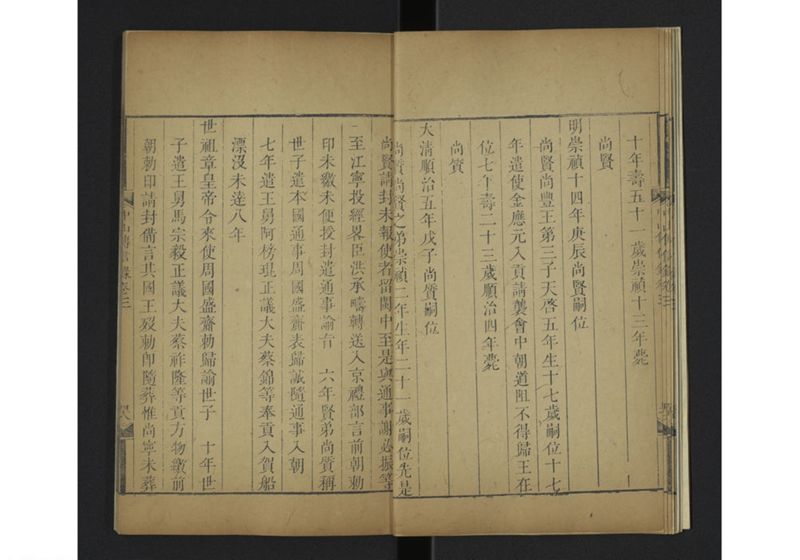 十年壽五十一歲崇禎十三年薨
尚賢
明崇禎十四年庚辰尚賢嗣位
尚賢尚豐王第三子天啓五年生十七歲嗣位十七
年遣使金應元入貢請襲會中朝道阻不得歸王在
位七年壽二十三歲順治四年薨
尚質
大清順治五年戊子尚質嗣位
尚質尚賢之弟崇禎二年生年二十一歲嗣位先是
尚賢請封未報使者留閩中至是與通事謝必振等
至江寧投經畧臣洪承疇轉送入京禮部言前朝勅
印未繳未便授封遣通事諭旨 六年賢弟尚質稱
世子遣本國通事周國盛齎表歸誠隨通事入朝
七年遣王舅阿榜琨正議大夫蔡錦等奉貢入賀船
漂沒未達八年
世祖章皇帝令來使周國盛齎勅歸諭世子 十年世
子遣王舅馬宗毅正議大夫蔡祚隆等貢方物繳前
朝勅印請封備言其國王歿勅印隨葬惟尚寧未葬
中山傳信錄卷三